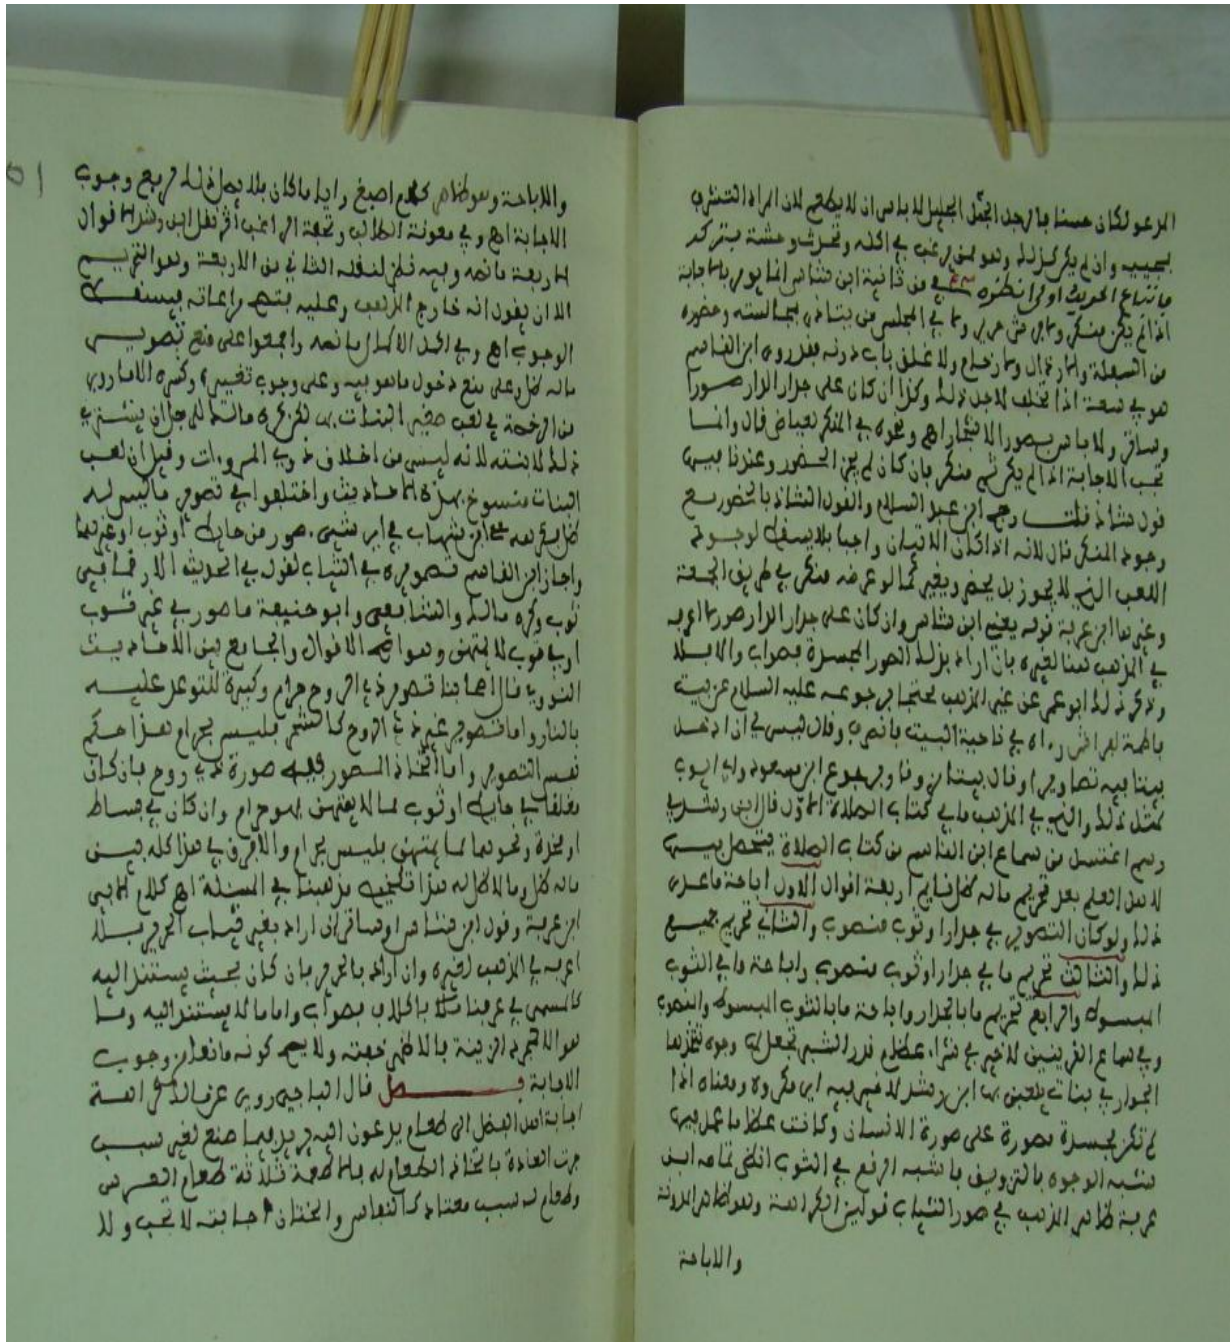 المدعو لكان حسنا فالرجل الجليل لا باس ان لا يطعم لان المراد التشرف
بمجيبه وان لم يكن كذلك وهو ممن يرغب في اكله وتحدث وحشة بتركه
فاتباع الحديث اولى انظره من ثانية ابن شاس انما يومر بالاجابة
اذا لم يكن منكر ولا فرش حرير ولا في المجلس من يتاذى بمجالسته وحضوره
من السفلة والارذال ولا زحام ولا غلق باب دونه فقد روى ابن القاسم
هو في سعة اذا تخلف لاجل ذلك وكذا ان كان على جدار الدار صورا
وساتر ولا باس بصور الاشجار اه ونحوه في المنكر لعياض قال وانما
تجب الاجابة اذا لم يكن ثم منكر فان كان لم يجز الحضور وعندنا فيه
قول شاذ قلت وجه ابن عبد السلام والقول الشاذ بالحضور مع
وجود المنكر قال لانه اذا كان الاتيان واجبا فلا يسقط لوجود
اللعب الذي لا يجوز بل يحضر ويغير كما لو عرضه منكر في طريق الجمعة
وغيرها ابن عرفة قوله يعني ابن شاس وان كان على جدار الدار صور لا اعرفه
في المذهب هنا لغيره فان اراد بذلك الصور المجسدة فصواب والا فلا
وذكر ذلك ابو عمر عن غير المذهب محتجا برجوعه عليه السلام عن بيت
فاطمة لفراش رءاه في ناحية البيت فانصرف وقال ليس لي ان ادخل
بيتا فيه تصاوير او قال بيتا مزوقا وبرجوع ابن مسعود وابي ايوب
لمثل ذلك والذي في المذهب ما في كتاب الصلاة الاول قال ابن رشد في
رسم اغتسل من سماع ابن القاسم من كتاب الصلاة يتحصل فيه
لاهل العلم بعد تحريم ما له ظل قائم اربعة اقوال الاول اباحة ما عدى
ذلك ولو كان التصوير في جدار او ثوب منصوب والثاني تحريم جميع
ذلك والثالث تحريم ما في جدار او ثوب منصوب واباحة ما في الثوب
المبسوط والرابع تحريم ما بالجدار واباحة ما بالثوب المبسوط والمنصوب
وفي سماع القرينين لا خير في شراء عظام قدر الشبر تجعل لها وجوه تتخذها
الجواري بنات يلعبن بها ابن رشد لا خير فيه اي مكروه ومعناه اذا
لم تكن مجسدة مصورة على صورة الانسان وكانت عظاما عمل فيها
شبه الوجوه بالتزويق فاشبه الرقم في الثوب انظر تمامه ابن
عرفة ظاهر المذهب في صور الثياب قولين الكراهة وهو ظاهر المدونة
والاباحة
والاباحة وهو ظاهر كلام اصبغ وايا ما كان فلا يصل ذلك لرفع وجوب
الاجابة اه وفي معونة الطالب وتحفة الراغب اثر نقل ابن رشد الاقوال
الاربعة ما نصه وفيه نظر لنقله الثاني من الاربعة وهو التحريم
الا ان يقول انه خارج المذهب وعليه يتجه مراعاته فيسقط
الوجوب اه وفي اكمال الاكمال ما نصه واجمعوا على منع تصوير
ما له ظل وعلى منع دخول ما هو فيه وعلى وجوب تغييره وكسره الا ما روي
من الرخصة في لعب صغير البنات بها لكن كره مالك للرجل ان يشتري
ذلك لابنته لانه ليس من اخلاق ذوي المروءات وقيل ان لعب
البنات منسوخ بهذه الاحاديث واختلفوا في تصوير ما ليس له
ظل فكرهه ابن شهاب في اي شيء صور من حائط او ثوب او غيرهما
واجاز ابن القاسم تصويره في الثياب لقوله في الحديث الا رقما في
ثوب وكره مالك والشافعي وابو حنيفة ما صور في غير ثوب
او في ثوب لا يمتهن وهو اصح الاقوال والجامع بين الاحاديث
النووي قال اصحابنا تصوير ذي الروح حرام وكبيرة للتوعد عليه
بالنار واما تصوير غير ذي الروح كالشجر فليس بحرام هذا حكم
نفس التصوير واما اتخاذ المصور فيه صورة ذي روح فان كان
معلقا في حائط او ثوب مما لا يمتهن فهو حرام وان كان في بساط
او مخدة ونحوهما مما يمتهن فليس بحرام ولا فرق في هذا كله بين
ما له ظل وما لا ظل له هذا تلخيص مذهبنا في المسئلة اه كلام الابي
ابن عرفة وقول ابن شاس او ساتر ان اراد بغير ثياب الحرير فلا
اعرفه في المذهب لغيره وان اراد بالحرير فان كان بحيث يستند اليه
كالمسمى في عرفنا بالحلاب فصواب واما ما لا يستند اليه وما
هو الا لمجرد الزينة فالاظهر خفته ولا يصح كونه مانعا من وجوب
الاجابة فصل قال الباجي روى عن مالك كراهة
اجابة اهل الفضل الى طعام يدعون اليه يريد فيما صنع لغير سبب
جرت العادة باتخاذ الطعام له فالاطعمة ثلاثة طعام العرس
وطعام له سبب معتاد كالنفاس والختان اجابته لا تجب ولا